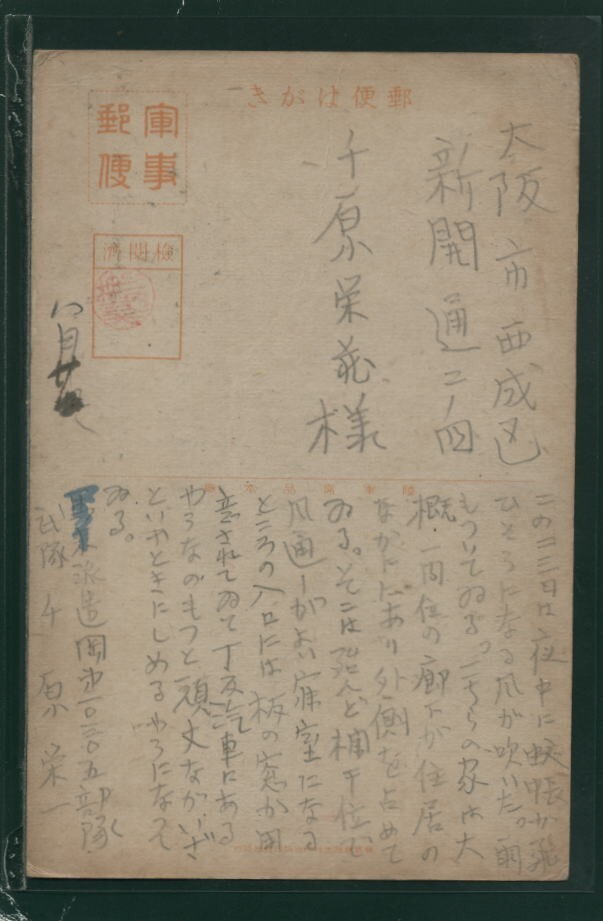 郵便はがき
軍事
郵便
検閲済
大阪市西成区
新開通二ノ四
千原栄蔵様
八月廿
この二三日は夜中に蚊帳が飛
ひさうになる風が吹いた。雨
もついてゐる。こちらの家は大
概一間位の廊下が住居の
なかにあり外側を占めて
ゐる。そこは殆んど欄干位で
風通しがよい。寝室になる
ところの入口には板の窓が用
意されてゐて丁度汽車にある
やうなのもつと頑丈なのがいざ
といふときにしめるやうになつて
ゐる。
派遣岡第一〇三〇五部隊
隊千原栄一